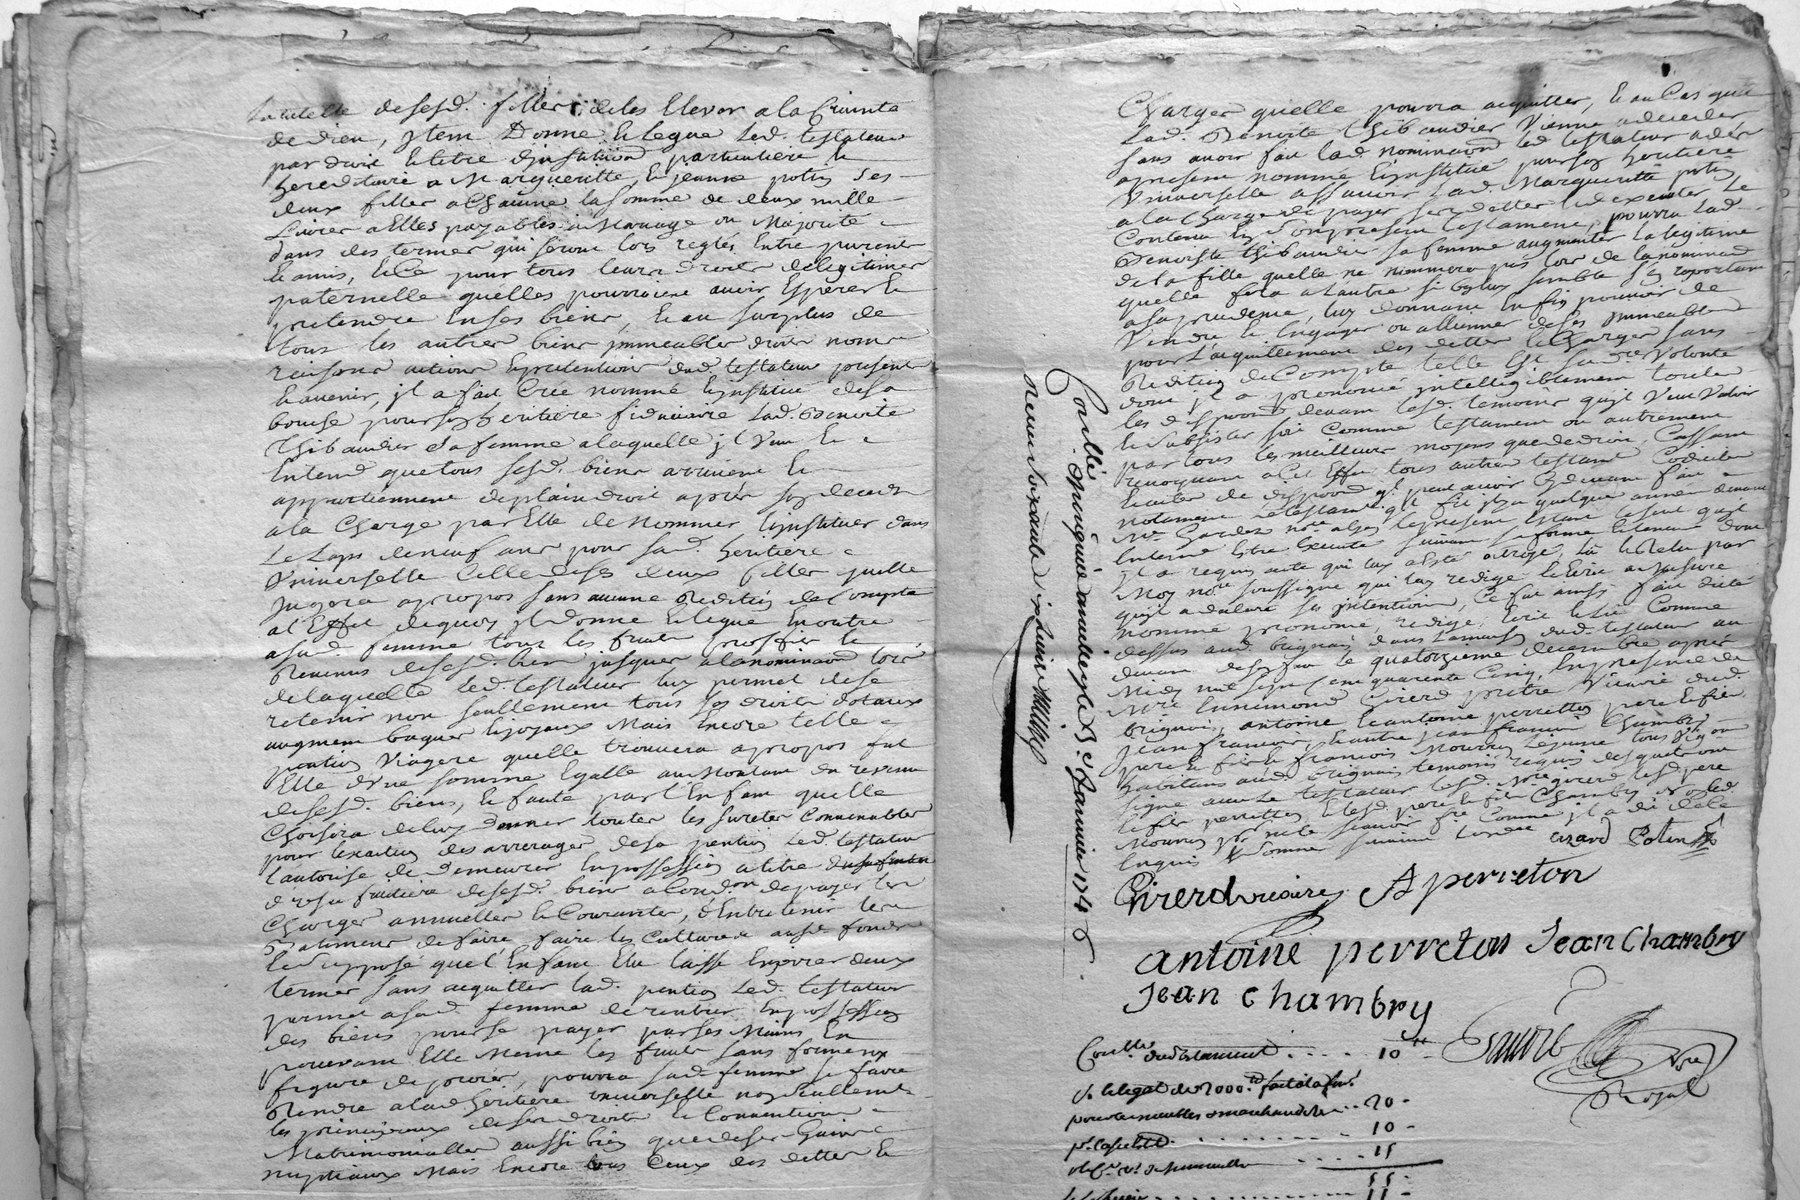 la tutelle desesd. filles, de les Elever a la Crainte
de dieu, jtem Donne & legue led. testateur
par droit & titre d'jnstitution particuliere &
hereditaire a Margueritte, & jeanne potin ses
deux filles a Chacune la somme de deux mille
Livres a Elles payables a Mariage ou Majorité
dans des termes qui seront lors reglés Entre parents
& amis, & Ce pour tous leurs droits de legitimes
paternelle quelles pourroient avoir Esperer &
pretendre En ses biens, & au surplus de
tous les autres biens jmmeubles droits noms
raisons actions & pretentions dud. testateur presents
& avenir, jl a fait Créé nommé & jnstitué de sa
bouche pour son heritiere fiduciaire lad. Benoite
Thibaudier sa femme a laquelle jl veut &
Entend que tous sesd. biens arrivent &
appartiennent de plain droit après son deceds
a la Charge par Elle de Nommer & jnstituer dans
Le Laps de neuf ans pour sad. heritiere
Vniverselle Celle de ses deux filles quelle
jugera apropos sans aucune Redition de Compte
a l'Effet de quoy jl donne & legue En outre
a sad. femme tous les fruits proffits &
Revenus desesd. biens jusques a la nomination lors
de laquelle led. testateur luy permet de se
retenir non seullement tous ses droits dotaux
augment bagues & joyaux Mais Encore telle
pention Viagere quelle trouvera apropos fut
Elle d'une somme Egalle au Montant du revenu
desesd. biens, & faute par l'Enfant quelle
Choisira de luy donner toutes les suretés Convenables
pour l'exaction des arrerages de sa pention Led. testateur
l'autorise de demeurer En possession a titre
d'usufruitiere desesd. biens a Condon. de payer les
Charges annuelles & Courantes, d'Entretenir les
Batiments de faire faire les Cultures aux fonds
& supposé que l'Enfant Elu laisse Expirer deux
termes sans acquitter lad. pention Led. testateur
permet a sad. femme de rentrer En possession
des biens pour se payer par ses Mains En
percevant Elle Meme les fruits sans forme ny
figure de procès, pourra sad. femme se faire
Rendre a lad. heritiere universelle non seullement
les principaux de ses droits & Conventions
Matrimonialles aussi bien que de ses Gains
nuptiaux Mais Encore tous Ceux des dettes &
Charges quelle pourra acquitter, & au Cas que
Lad. Benoite Thibaudier Vienne a deceder
sans avoir fait lad. nomination led. testateur a dès
apresent nommé & jnstitué pour son heritiere
Vniverselle assavoir Lad. Marguerite potin
a la Charge de payer ses dettes & d'executer Le
Contenu En son present testament, pourra lad.
Benoiste Thibaudier sa femme augmenter la legitime
de la fille quelle ne nommera pas lors de la nomination
quelle fera a l'autre si bon luy semble s'En raportant
a sa prudence, luy donnant En fin pouvoir de
Vendre & Engager ou alliener de ses jmmeubles
pour L'acquittement des dettes & Charges sans
Redition de Compte telle Est sa dre. Volonté
dont jl a prononcé jntelligiblement toutes
les dispoons. devant lesd. temoins qu'jl Veut Valoir
& subsister soit Comme testament ou autrement
par tous les meilleurs moyens que de droit, Cassant
revoquant a Cet Effet tous autres testaments Codicilles
& autres de dispoons. qu'jl peut avoir Cydevant fait
notament le testamt. qu'jl fit jl y a quelques années devant
Me. Gardes nore. a Lyon, le present Etant le seul qu'jl
Entend Etre Executé suivant sa forme & teneur dont
jl a requis acte qui luy a Eté octroyé, Lû & relu par
Moy nore. soussigné qui l'ay redigé & Ecrit a mesure
qu'jl a declaré ses jntentions, Ce fut ainsi fait dicté
nommé prononcé, redigé, Ecrit & Lû Comme
dessus aud. brignais dans La maison dud. testateur au
devant de son four le quatorzieme decembre après
Midy mil sept Cent quarante Cinq, En presence de
Mre. Ennemond Girerd pretre Vicaire dud.
brignais, antoine & antoine perreton pere & fils
Jean francois, & autre jean francois Chambry
pere & fils & francois Mourron Lejeune tous Vgnons.
habitans aud. brignais temoins requis desquels ont
signé avec Le testateur led. Mre. girerd lesd. pere
& fils perreton, & lesd. pere & fils Chambry Non led.
Mourron pr. ne le scavoir fre. Comme jl a dit de Ce
Enquis & sommé suivant Lordce. Girard Potin
Girerd vicaire A perreton
antoine perreton Jean Chambry
Jean Chambry
Conllé. & jnsinué a millery le 3e. Janvier 1746.
Receu soixante six livres
Conlle. du testament .... 10 tt
p. le legat de 2000 tt. fait a la fe.
pour les meubles & marchandises .. 20 -
10 -
15
55 -
11 -
Nre.
Royal